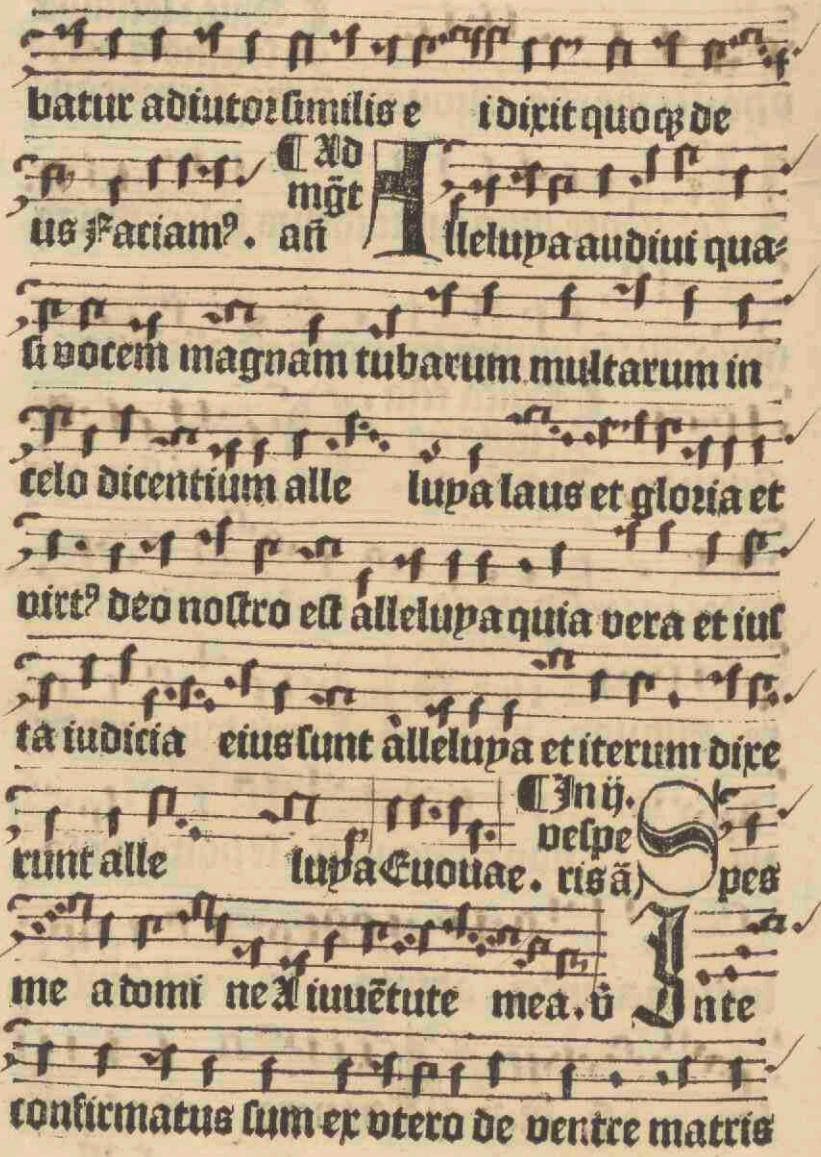 batur adiutor similis e i dixit quoqꝫ de
us Faciamꝰ. ¶ Ad mg̃t añ Alleluya audiui qua⸗
si vocem magnam tubarum multarum in
celo dicentium alle luya laus et gloria et
virtꝰ deo nostro est alleluya quia vera et ius
ta iudicia eius sunt alleluya et iterum dixe
runt alle luya Euouae. ¶ In ij. vespe ris ã) Spes
me a domi ne A iuuētute mea. v̄ In te
confirmatus sum ex vtero de ventre matris